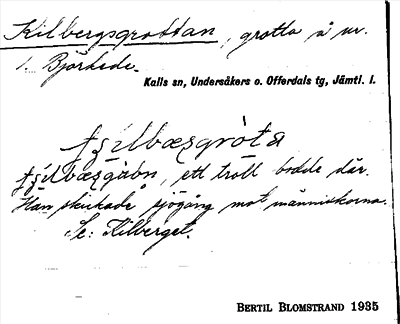 Kilbergsgrottan, grotta å nr.
1. Björkede.
Kalls sn, Undersåkers o. Offerdals tg, Jämtl. l.
ett troll bodde där.
Han skickade sjögång mot människorna.
Se: Kilberget.
BERTIL BLOMSTRAND 1935